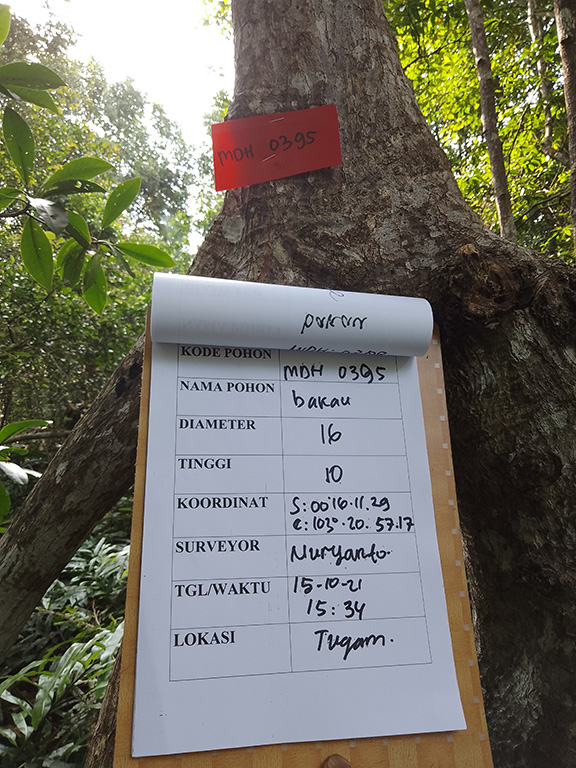 MDH 0395
KODE POHON
MDH 0395
NAMA POHON
bakau
DIAMETER
16
TINGGI
10
KOORDINAT
S: 00°16.11.29
e: 103°.20.57.17
SURVEYOR
Nuryanto.
TGL/WAKTU
15-10-21
15:34
LOKASI